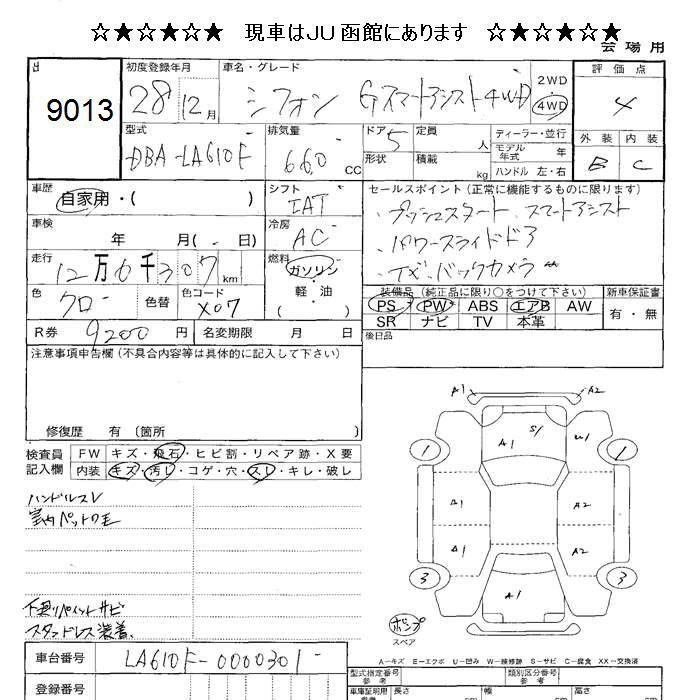 ☆★☆★☆★ 現車はJU函館にあります ☆★☆★☆★
会場用
出
9013
初度登録年月
28 12月
車名・グレード
シフォン Gスマートアシスト4WD
2WD
4WD
評価点
4
型式
DBA-LA610F
排気量
660 CC
ドア 5
形状
定員 人
積載 kg
ディーラー・並行
モデル年式 年
ハンドル 左・右
外装 内装
B C
車歴
自家用・( )
シフト
IAT
セールスポイント(正常に機能するものに限ります)
・プッシュスタート、スマートアシスト
・パワースライドドア
バックカメラ
車検
年 月(-日)
冷房
AC
走行
12万6千307km
燃料
ガソリン
軽・油
( )
色
クロ
色替
色コード
X07
装備品(純正品に限り○をつけて下さい)
PS PW ABS エアB AW
SR ナビ TV 本革
新車保証書
有・無
R券 9200円
名変期限 月 日
後日品
注意事項申告欄(不具合内容等は具体的に記入して下さい)
修復歴 有(箇所 )
検査員記入欄
FW キズ・飛石・ヒビ割・リペア跡・X要
内装 キズ・汚し・コゲ・穴・スレ・キレ・破レ
ハンドルスレ
室内ペットの毛
下廻りペイントサビ
スタッドレス装着
A1 A2
S/
A1 U1
1 1
B1 A2
A1 A2
3 3
A1
ポンプ
スペア
A-キズ E-エクボ U-凹み W-補修跡 S-サビ C-腐食 XX-交換済
車台番号 LA610F-0000301
登録番号
型式指定番号
参考
類別区分番号
参考
車庫証明用
参考
長さ cm
幅 cm
高さ cm